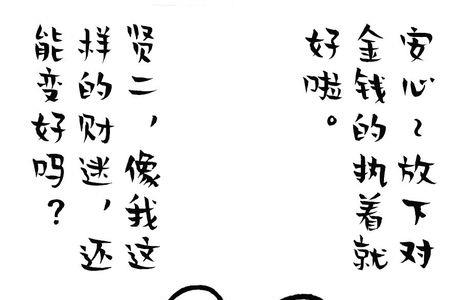 安心~放下对
金钱的执着就
好啦。
贤二，像我这
样的财迷，还
能变好吗？